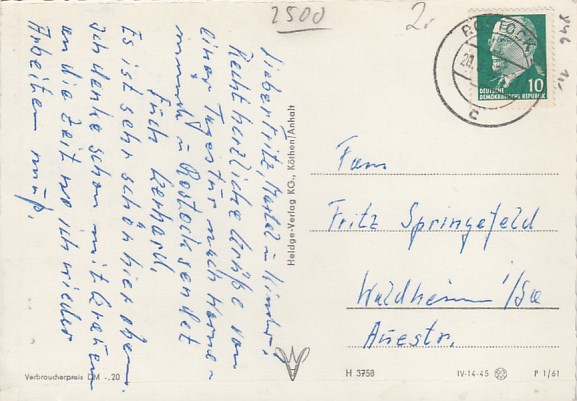 2500
2.
ROSTOCK
c
DEUTSCHE
DEMOKRATISCHE REPUBLIK
10
Lieber Fritz, Martel u. Kinder!
Recht herzliche Grüße von
einer Tagestür nach Warne-
münde u. Rostock sendet
Euch Gerhard.
Es ist sehr schön hier oben.
Ich denke schon mit Grauen
an die Zeit wo ich wieder
Arbeiten muß.
Heldge-Verlag KG., Köthen/Anhalt
Fam
Fritz Springefeld
Waldheim i/Sa
Auestr.
Verbraucherpreis DM -.20
H 3758
IV-14-45
P 1/61